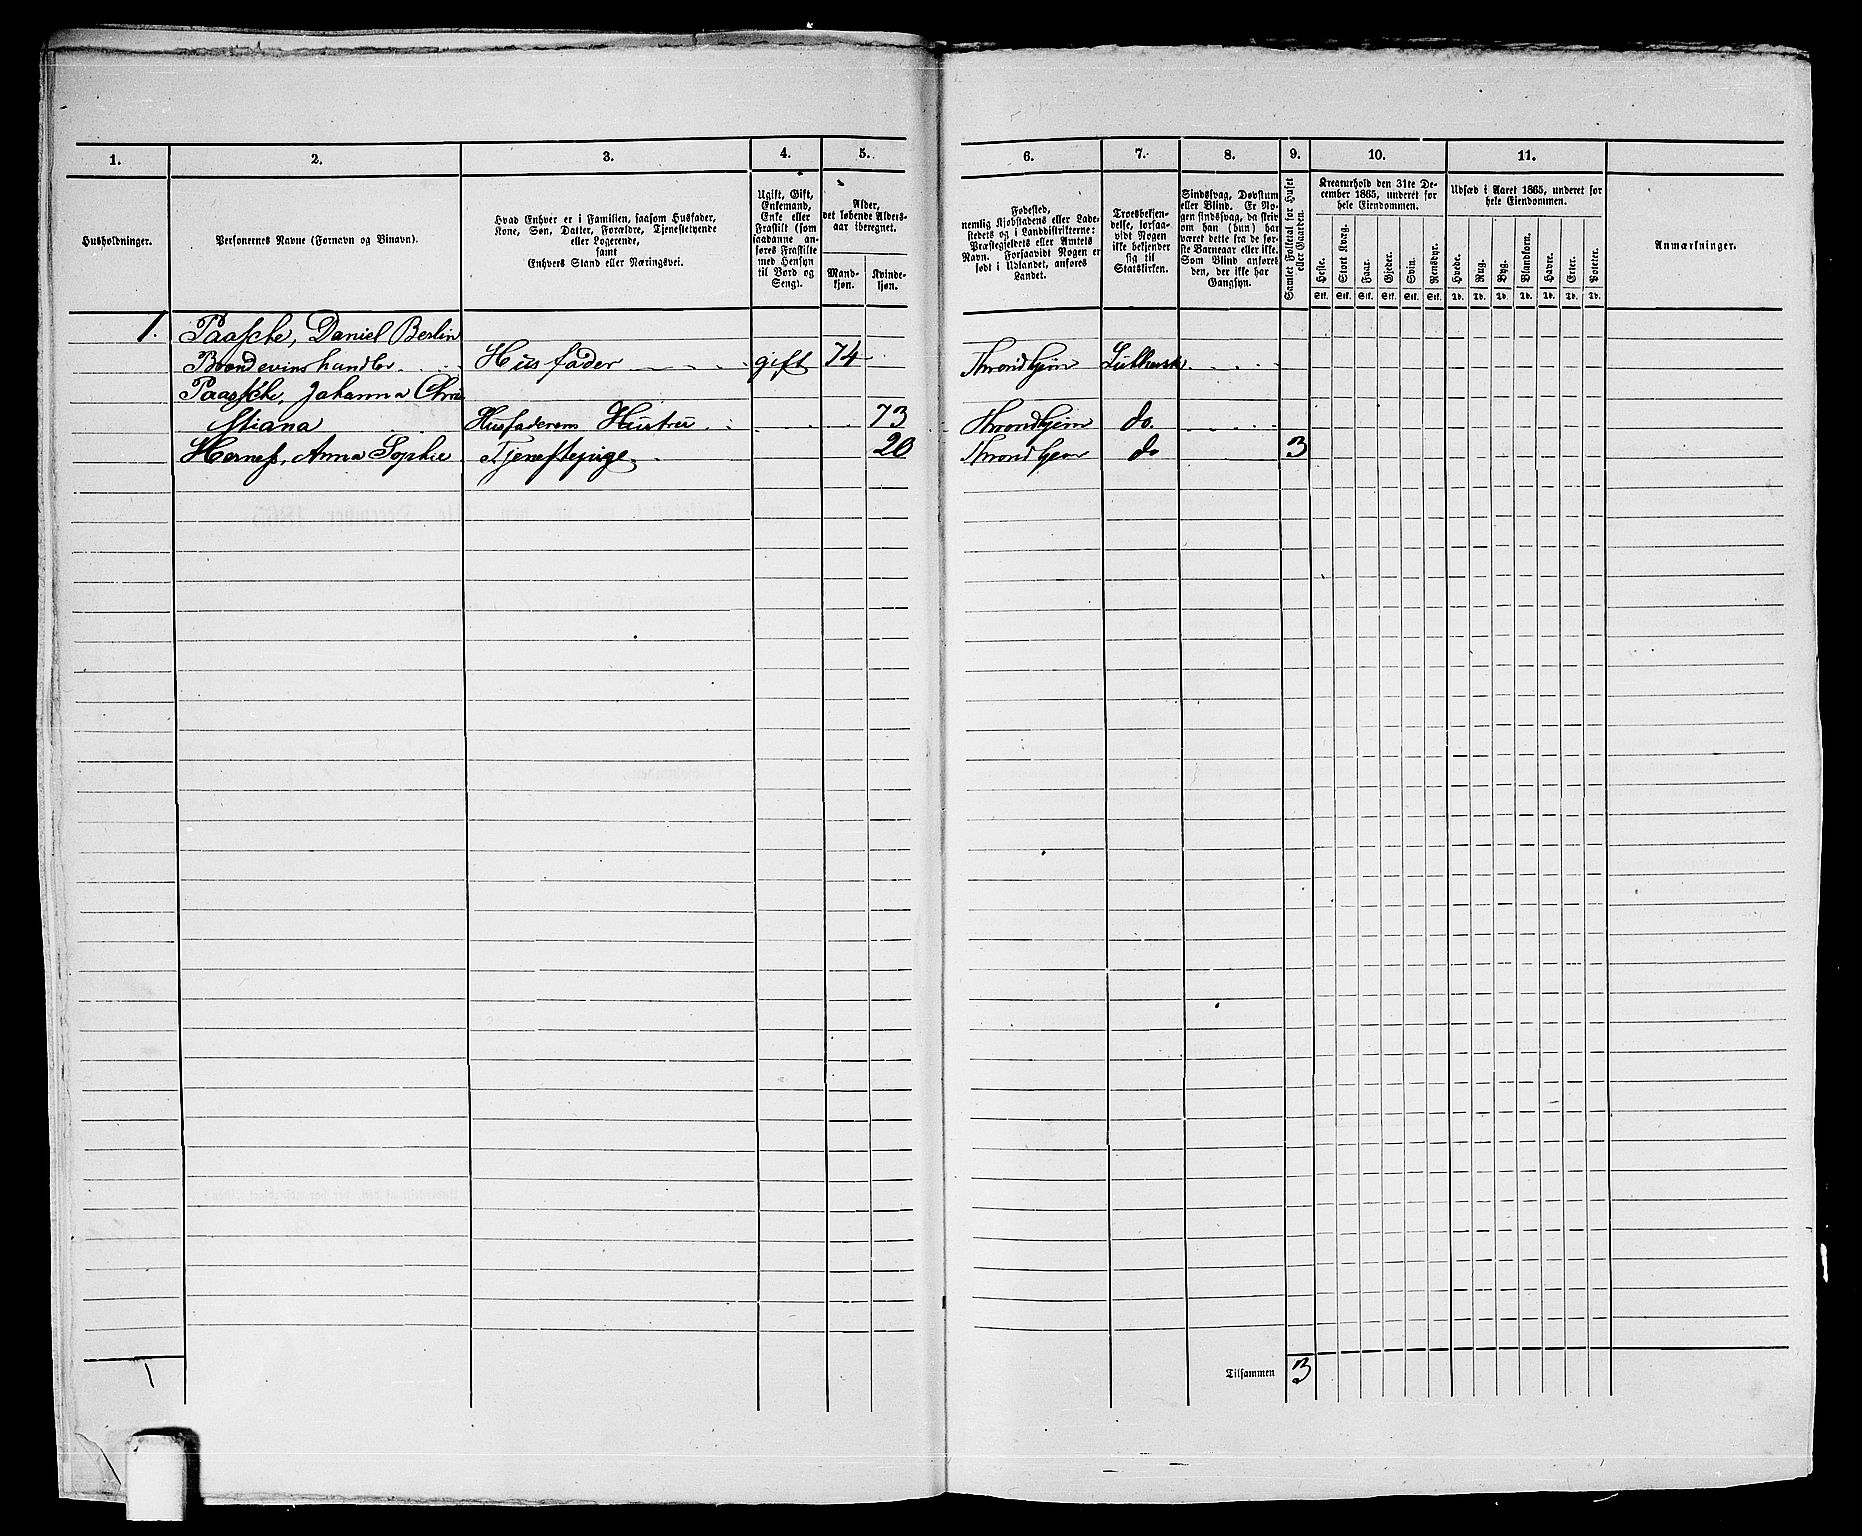 1. 2. 3. 4. 5. 6. 7. 8. 9. 10. 11.
Husholdninger.
Personernes Navne (Fornavn og Binavn).
Hvad Enhver er i Familien, saasom Husfader,
Kone, Søn, Datter, Forældre, Tjenestetyende
eller Logerende,
samt
Enhvers Stand eller Næringsvei.
Ugift, Gift,
Enkemand,
Enke eller
Fraskilt (som
saadanne an-
føres Fraskilte
med Hensyn
til Bord og
Seng).
Alder,
det løbende Alders-
aar iberegnet.
Mand-
kjøn.
Kvinde-
kjøn.
Fødested,
nemlig Kjøbstadens eller Lade-
stedets og i Landdistrikterne:
Præstegjeldets eller Amtets
Navn. Forsaavidt Nogen er
født i Udlandet, anføres
Landet.
Troesbekjen-
delse, forsaa-
vidt Nogen
ikke bekjender
sig til
Statskirken.
Sindssvag, Døvstum
eller Blind. Er No-
gen sindssvag, da skriv
om han (hun) har
været dette fra de før-
ste Barneaar eller ikke.
Som Blind anføres
den, der ikke har
Gangsyn.
Samlet Folketal for Huset
eller Gaarden.
Kreaturhold den 31te De-
cember 1865, underet for
hele Eiendommen.
Heste. Stort Kvæg. Faar. Gjeder. Svin. Rensdyr.
Stk. Stk. Stk. Stk. Stk. Stk.
Udsæd i Aaret 1865, underet for
hele Eiendommen.
Hvede. Rug. Byg. Blandkorn. Havre. Erter. Poteter.
Td. Td. Td. Td. Td. Td. Td.
Anmærkninger.
1. Paasche, Daniel Berlin
Brændevinshandler Husfader gift 74 Throndhjem Luthersk
Paasche, Johanna Chri
stiana Husfaderens Hustru 73 Throndhjem do.
Herness, Anna Sophie Tjenestepige 20 Throndhjem do 3
1
Tilsammen 3